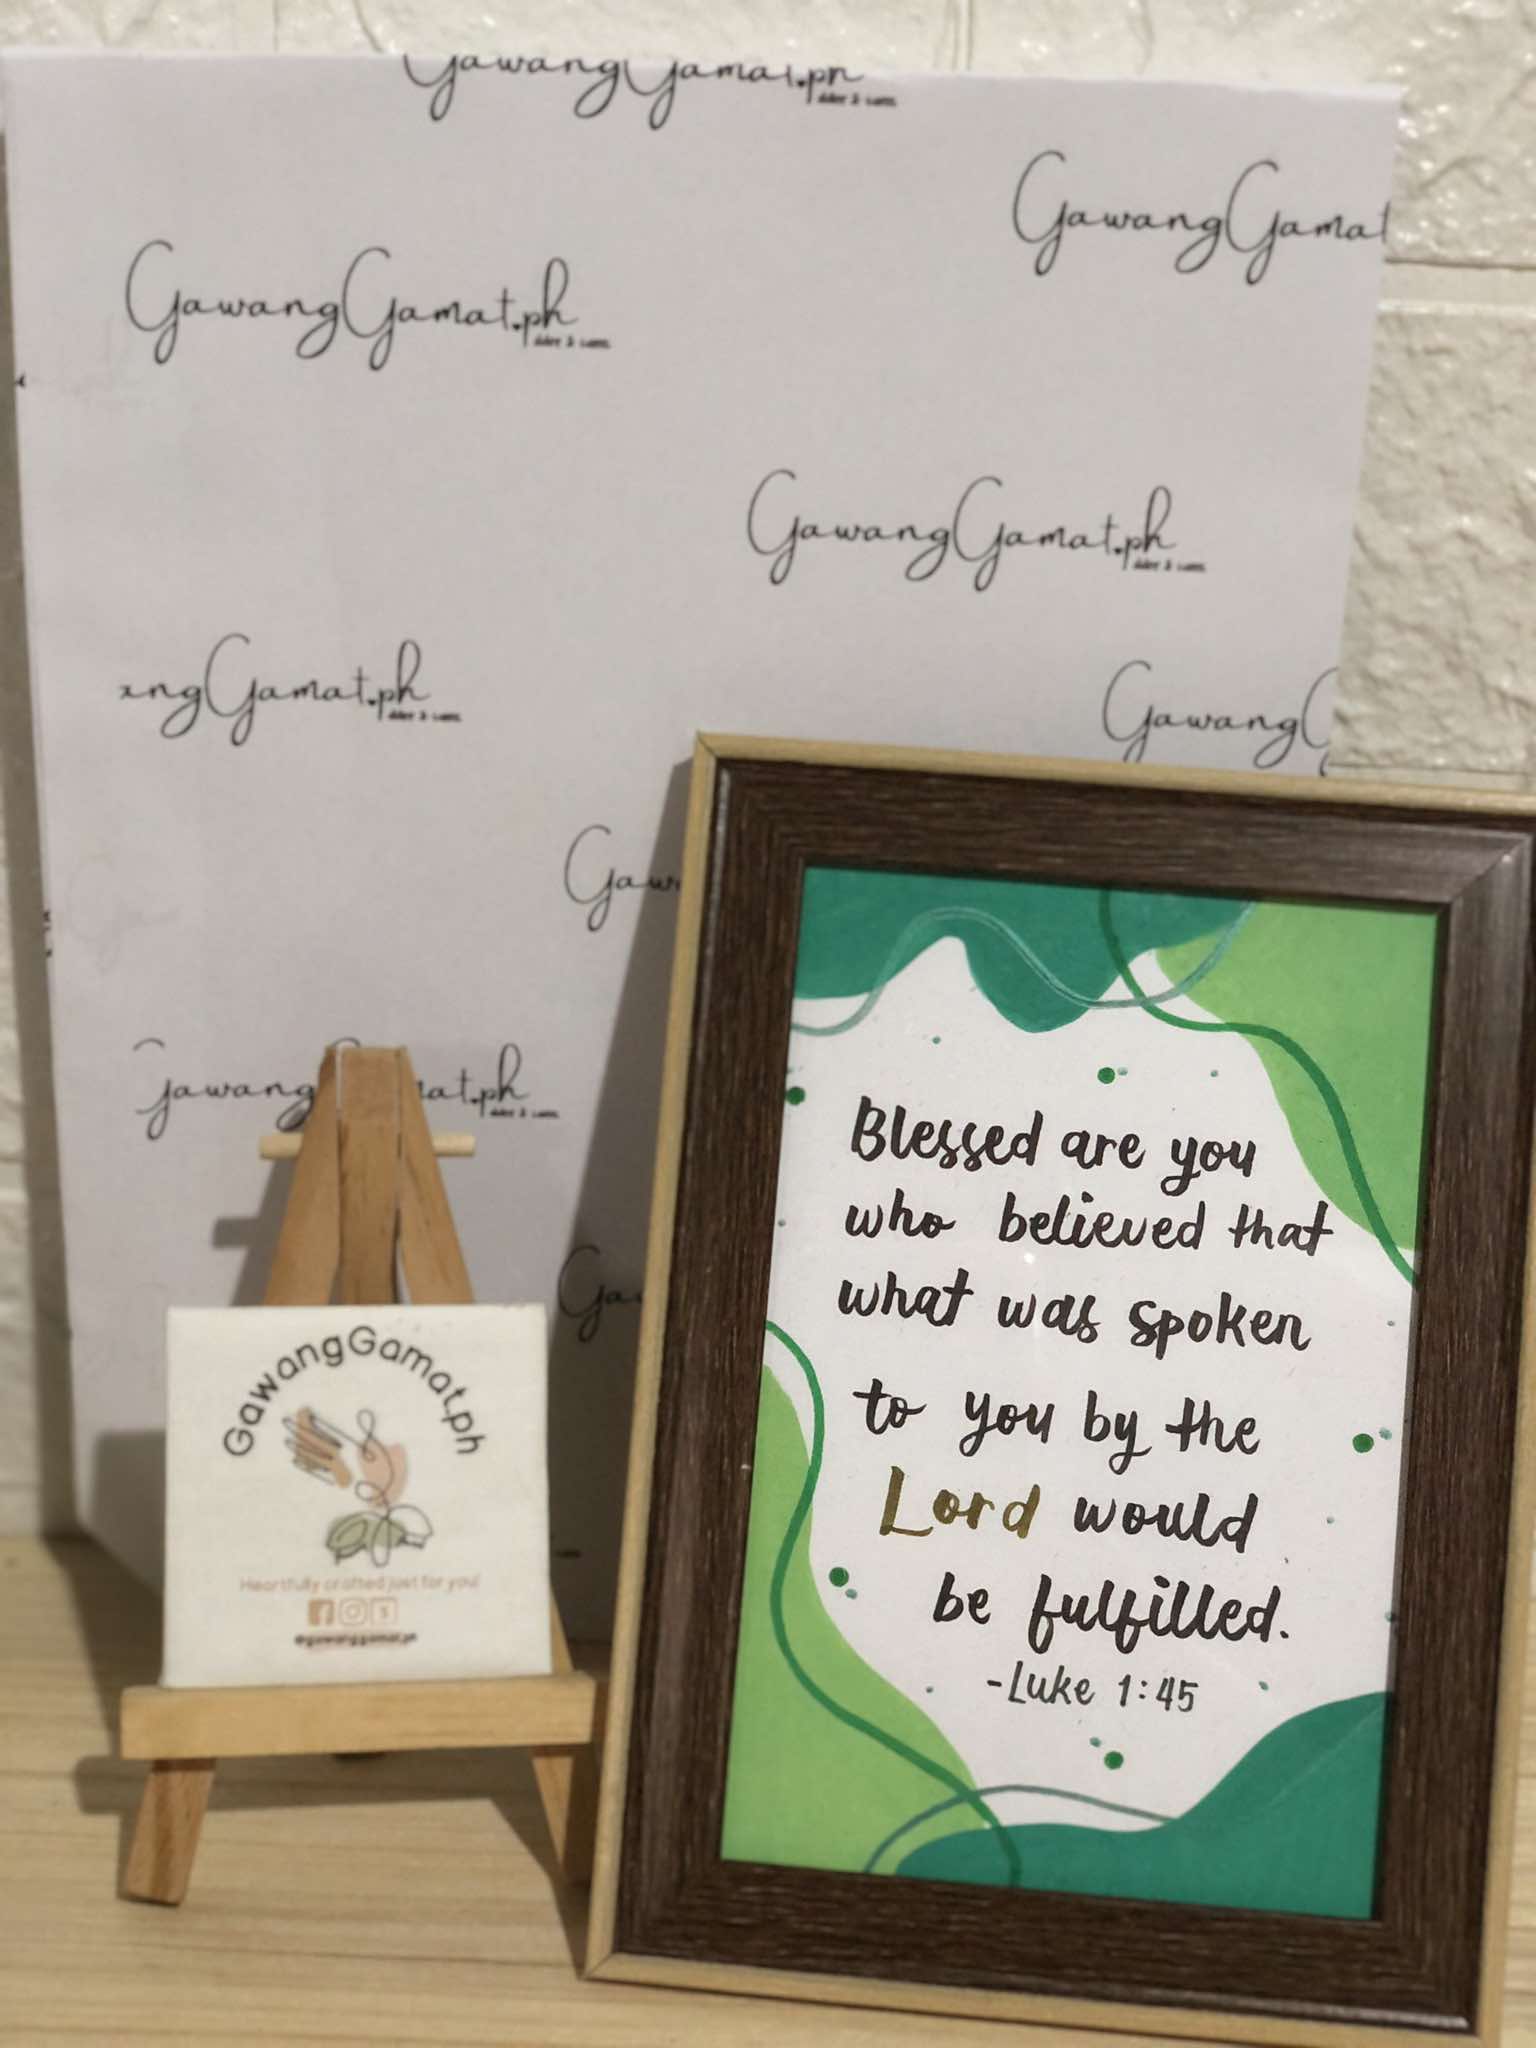 GawangGamat.ph
GawangGamat
GawangGamat.ph
GawangGamat.ph
angGamat.ph
GawangG
Gaw
Gawang amat.ph
Ga
GawangGamat.ph
Heartfully crafted just for you!
@gawanggamat.ph
Blessed are you
who believed that
what was spoken
to you by the
Lord would
be fulfilled.
-Luke 1:45